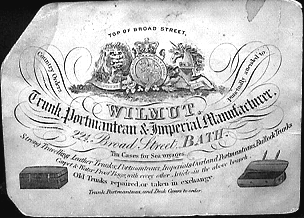 TOP OF BROAD STREET,
Country Orders
Punctually attended to
WILMUT,
Trunk, Portmanteau & Imperial Manufacturer,
Broad Street, BATH.
Tin Cases for Sea voyages.
Strong Travelling Leather Trunks, Portmanteaus, Imperials, Portmanteaus, Bullock Trunks
Carpet & Water Proof Bags, with every other Article in the above branch.
Old Trunks repaired, or taken in exchange.
Trunk, Portmanteau, and Desk Cases to order.